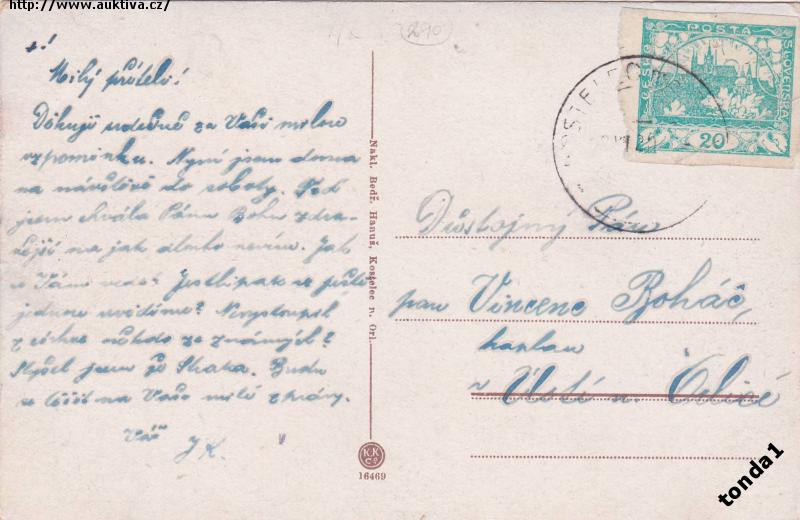 http://www.auktiva.cz/
290
Milý příteli!
Děkuji srdečně za Vaši milou
vzpomínku. Nyní jsem doma
na návštěvě do soboty. Teď
jsem chvála Pánu Bohu zdra-
vější na jak dlouho nevím. Jak
se Vám vede? Jestlipak se ještě
jednou uvidíme? Nevystoupil
z círhve někdo ze známých?
Slyšel jsem že Straka. Budu
se těšit na Vaše milé zprávy.
Váš
JK.
Nakl. Bedř. Hanuš, Kostelec n. Orl.
K.K.
C.P.
16469
POŠTA
ČESKO
SLOVENSKÁ
20
KOSTELEC
Důstojný Pán
pan Vincenc Boháč,
kaplan
v Ústí n. Orlicí
tonda1